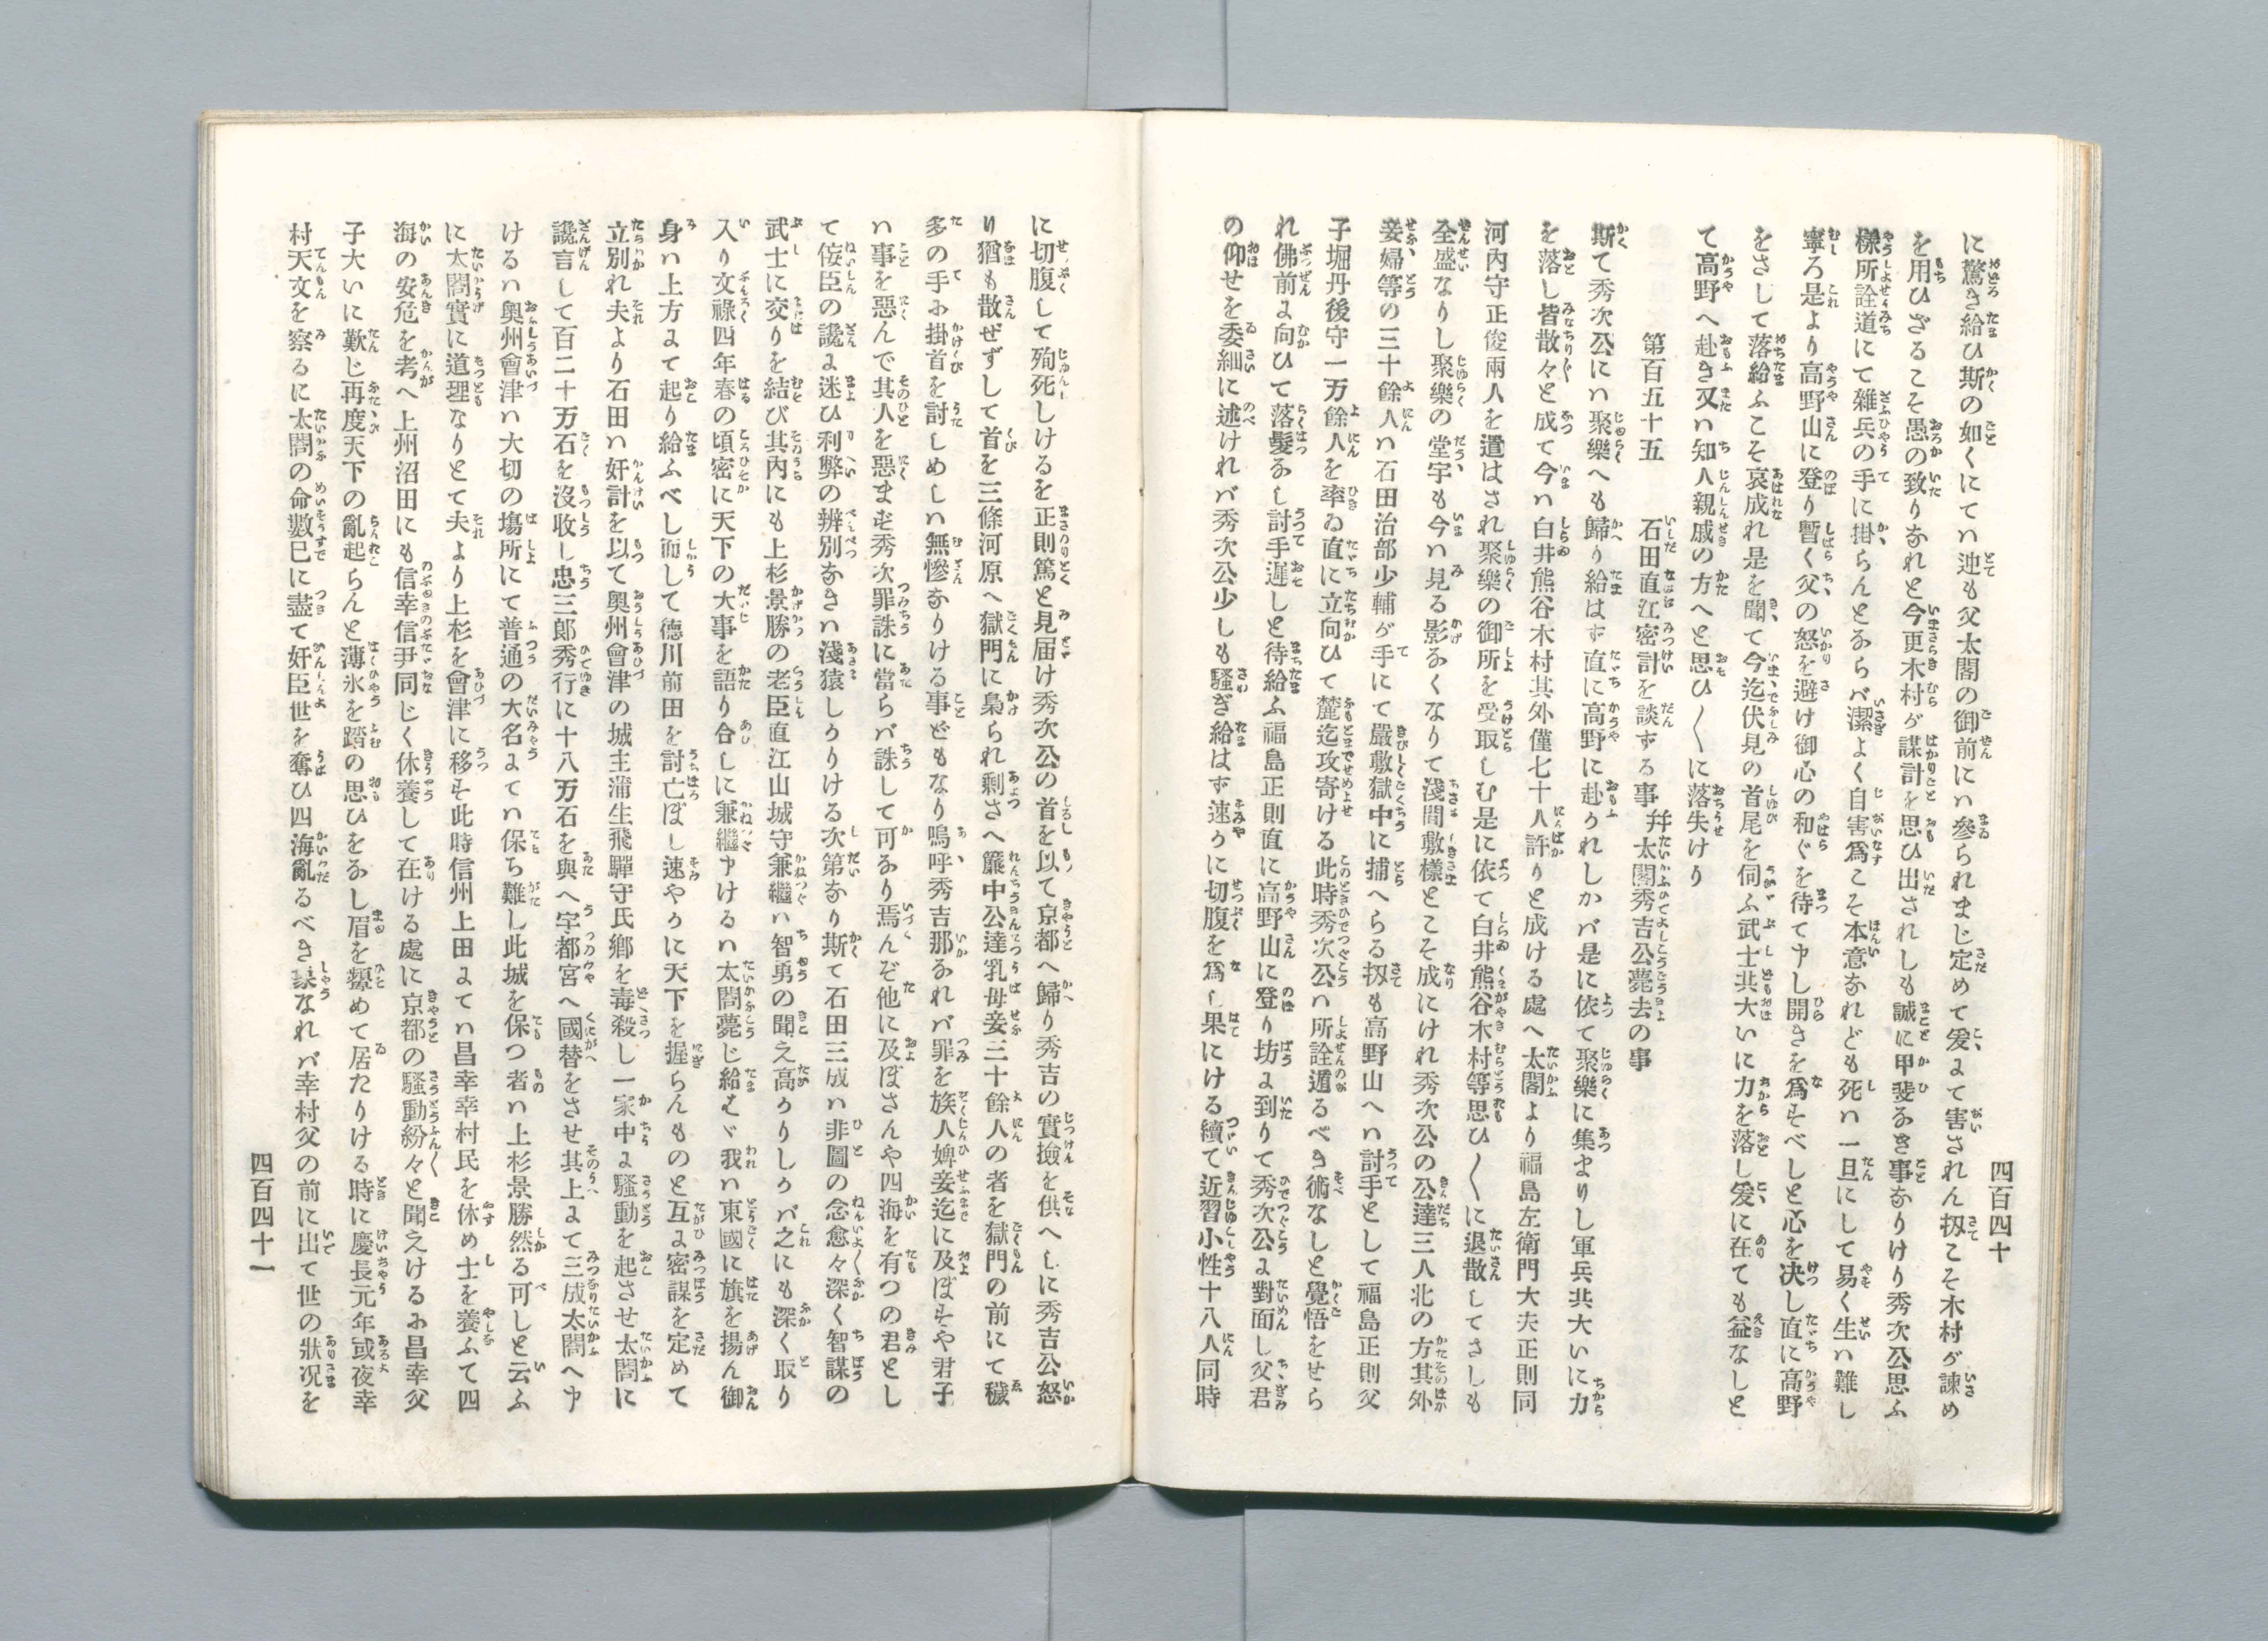 四百四十
に驚き給ひ斯の如くにてハ迚も父太閤の御前にハ參られまじ定めて爰まて害されん扨こそ木村が諫め
を用ひざるこそ愚の致りなれと今更木村が謀計を思ひ出されしも誠に甲斐なき事なりけり秀次公思ふ
樣所詮道にて雜兵の手に掛らんとならバ潔よく自害爲こそ本意なれども死ハ一旦にして易く生ハ難し
寧ろ是より高野山に登り暫く父の怒を避け御心の和ぐを待て申し開きを爲すべしと心を決し直に高野
をさして落給ふこそ哀成れ是を聞て今迄伏見の首尾を伺ふ武士共大いに力を落し爰に在ても益なしと
て高野へ赴き又ハ知人親戚の方へと思ひ〱に落失けり
第百五十五　石田直江密計を談ずる事并太閤秀吉公薨去の事
斯て秀次公にハ聚樂へも歸り給はず直に高野に赴かれしかバ是に依て聚樂に集まりし軍兵共大いに力
を落し皆散々と成て今ハ白井熊谷木村其外僅七十人許りと成ける處へ太閤より福島左衛門大夫正則同
河内守正俊兩人を遣はされ聚樂の御所を受取しむ是に依て白井熊谷木村等思ひ〱に退散してさしも
全盛なりし聚樂の堂宇も今ハ見る影なくなりて淺間敷樣とこそ成にけれ秀次公の公達三人北の方其外
妾婦等の三十餘人ハ石田治部少輔が手にて嚴敷獄中に捕へらる扨も高野山へハ討手として福島正則父
子堀丹後守一万餘人を率ゐ直に立向ひて麓迄攻寄ける此時秀次公ハ所詮遁るべき術なしと覺悟をせら
れ佛前に向ひて落髮なし討手遲しと待給ふ福島正則直に高野山に登り坊に到りて秀次公に對面し父君
の仰せを委細に述けれバ秀次公少しも騷ぎ給はず速かに切腹を爲し果にける續て近習小性十八人同時
に切腹して殉死しけるを正則篤と見届け秀次公の首を以て京都へ歸り秀吉の實撿を供へしに秀吉公怒
り猶も散ぜずして首を三條河原へ獄門に梟られ剩さへ簾中公達乳母妾三十餘人の者を獄門の前にて穢
多の手に掛首を討しめしハ無慘なりける事どもなり嗚呼秀吉那なれバ罪を族人婢妾迄に及ぼすや君子
ハ事を惡んで其人を惡まず秀次罪誅に當らバ誅して可なり焉んぞ他に及ぼさんや四海を有つの君とし
て侫臣の讒に迷ひ利弊の辨別なきハ淺猿しかりける次第なり斯て石田三成ハ非圖の念愈々深く智謀の
武士に交りを結び其内にも上杉景勝の老臣直江山城守兼繼ハ智勇の聞え高かりしかバ之にも深く取り
入り文祿四年春の頃密に天下の大事を語り合しに兼繼申けるハ太閤薨じ給むバ我ハ東國に旗を揚ん御
身ハ上方まて起り給ふべし而して德川前田を討亡ぼし速やかに天下を握らんものと互に密謀を定めて
立別れ夫より石田ハ奸計を以て奥州會津の城主蒲生飛驒守氏鄕を毒殺し一家中に騷動を起させ太閤に
讒言して百二十万石を沒收し忠三郎秀行に十八万石を與へ宇都宮へ國替をさせ其上まて三成太閤へ申
けるハ奥州會津ハ大切の塲所にて普通の大名まてハ保ち難し此城を保つ者ハ上杉景勝然る可しと云ふ
に太閤實に道理なりとて夫より上杉を會津に移す此時信州上田まてハ昌幸幸村民を休め士を養ふて四
海の安危を考へ上州沼田にも信幸信尹同じく休養して在ける處に京都の騷動紛々と聞えけるに昌幸父
子大いに歎じ再度天下の亂起らんと薄氷を踏の思ひをなし眉を顰めて居たりける時に慶長元年或夜幸
村天文を察るに太閤の命數已に盡て奸臣世を奪ひ四海亂るべき象なれバ幸村父の前に出て世の狀况を
四百四十一